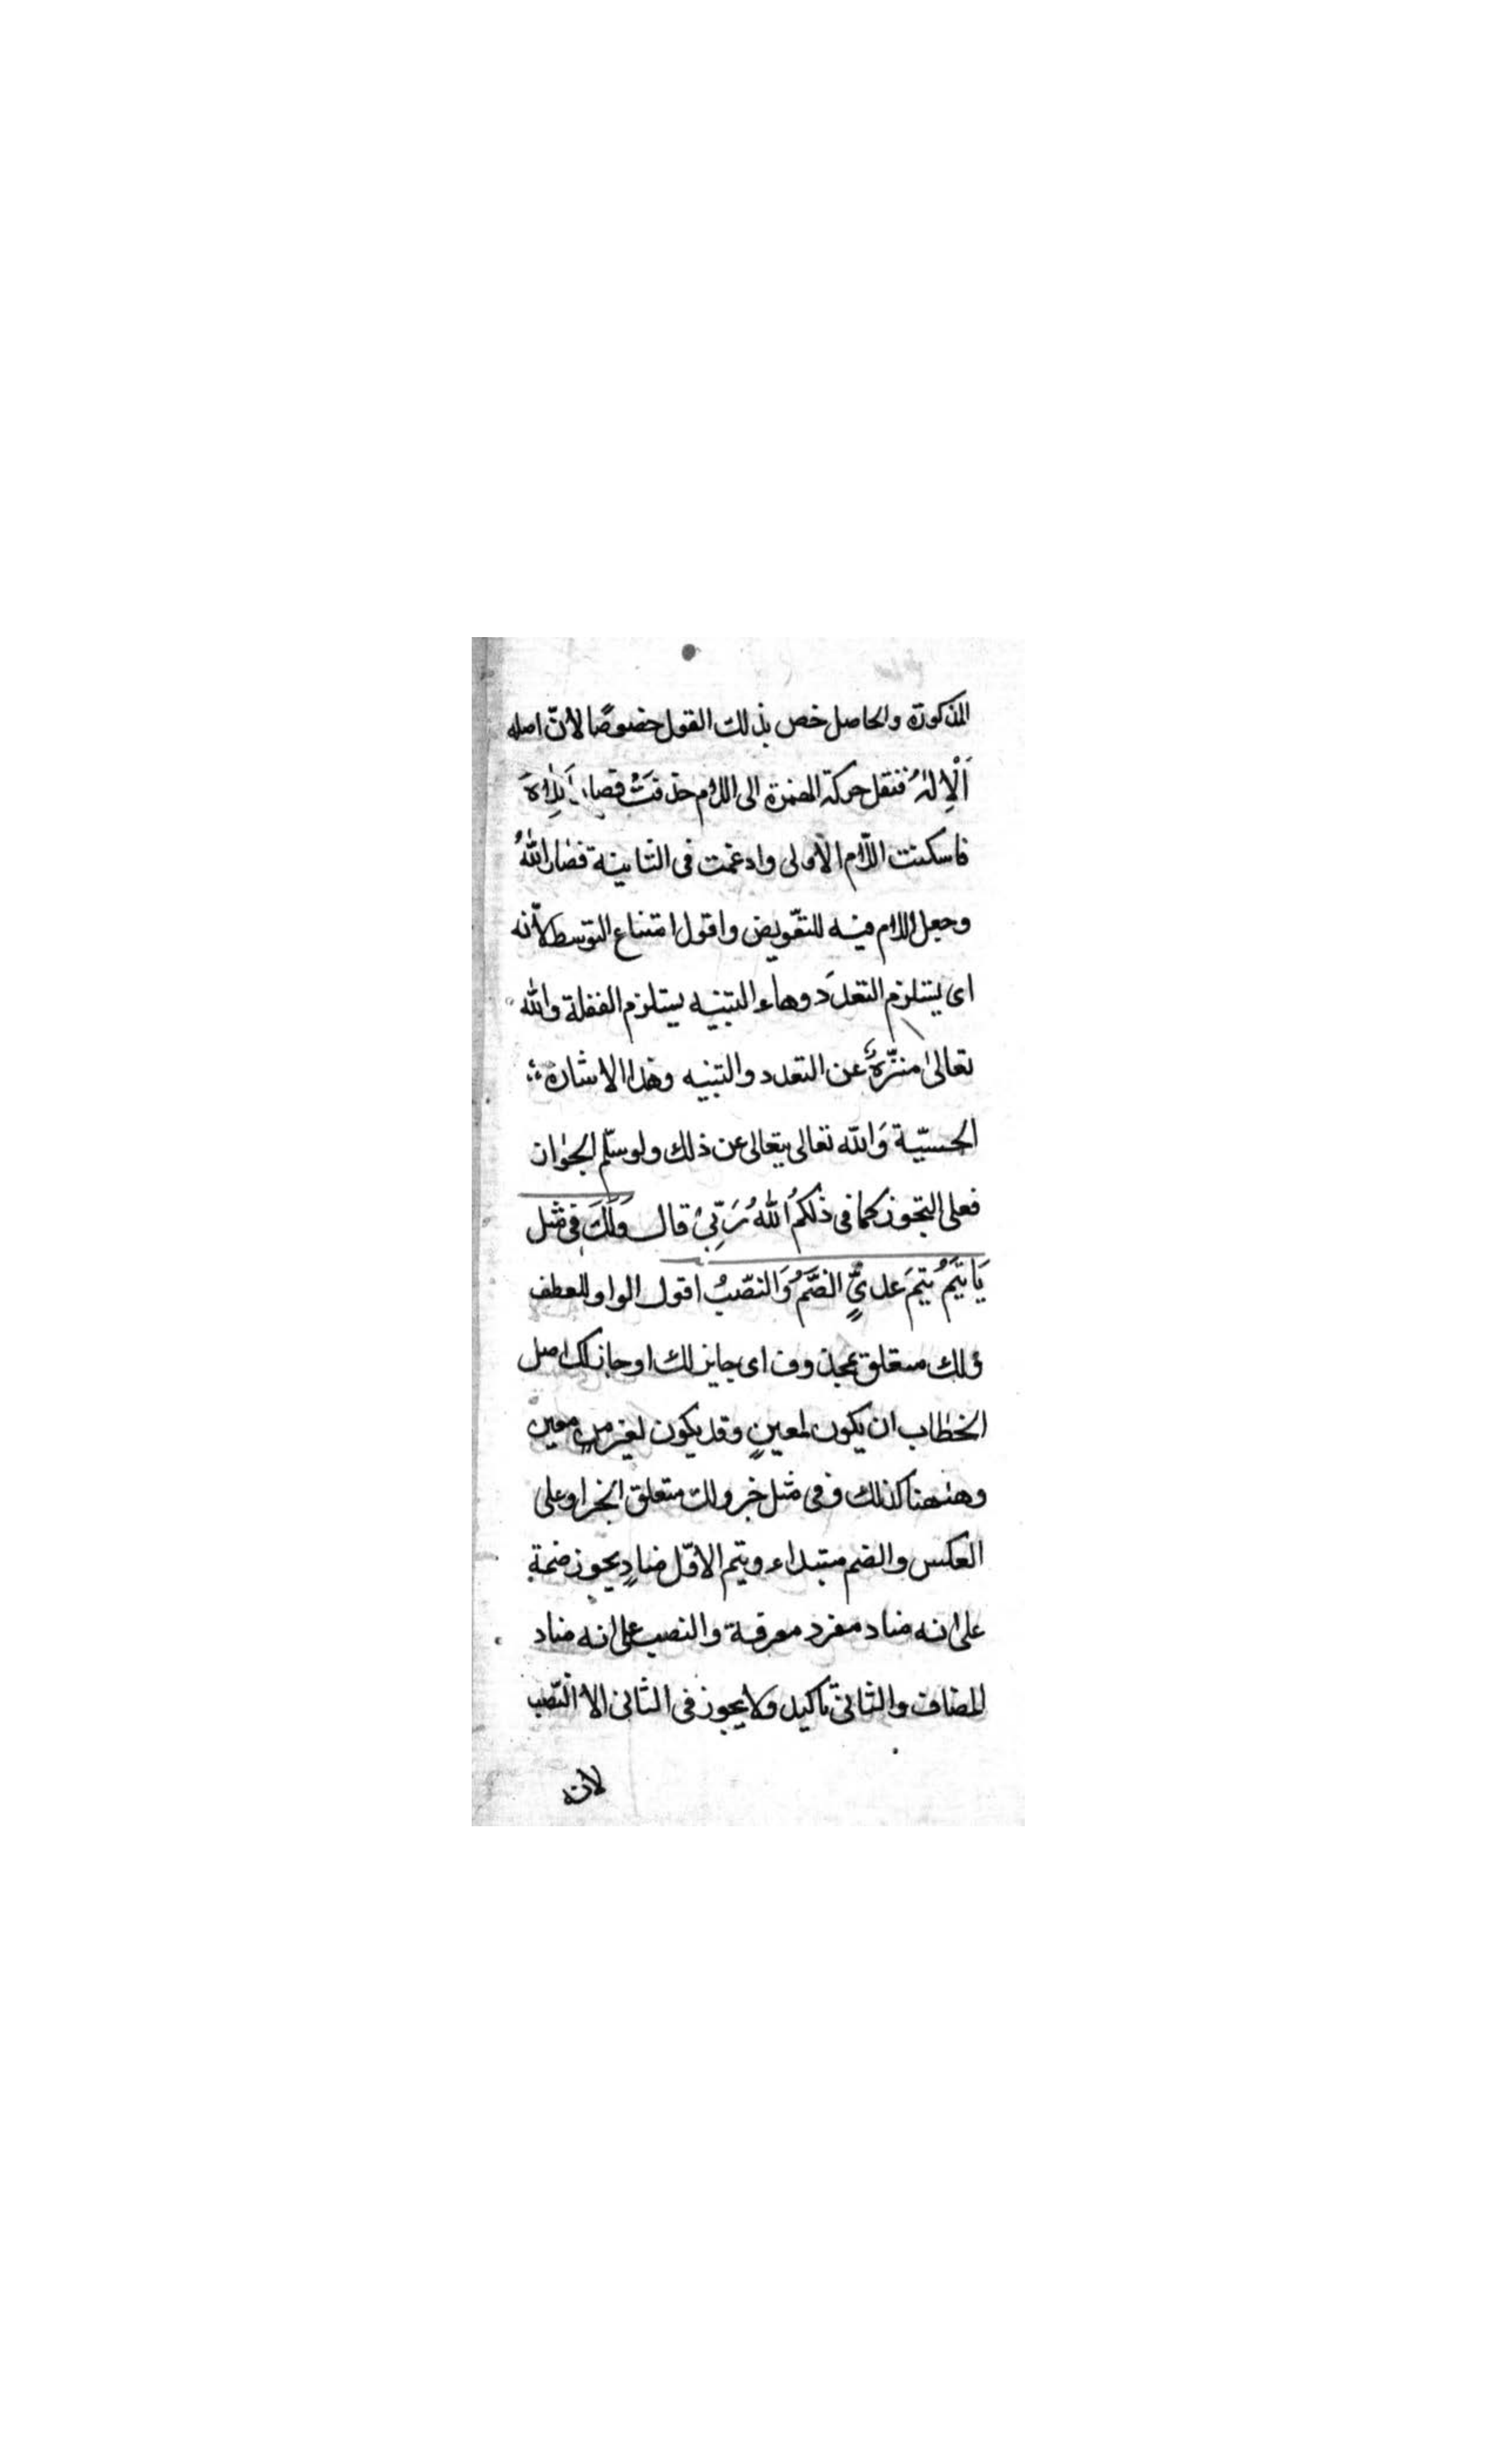 المذكورة والحاصل خص بذلك القول خصوصًا لانّ اصله
اَلْاِلٰهُ فنقل حركة الهمزة الى اللام حذفتْ فصار
فاسكنت اللّام الاولى وادغمت فى الثانية فصٰار اللّٰهُ
وجعل اللام فيه للتعّويض واقول امتناع التوسط لانّه
اى يستلزم التعدّد وهاء التنبيه يستلزم الغفلة والله
تعالىٰ منزّهٌ عن التعدد والتنبيه وهذا الاشارة
الحسيّة وَاللّه تعالى يتعالى عن ذلك ولو سلّم الجوٰاز
فعلى التجوز كما فى ذلكمُ اللّٰهُ رَبّى قال وَلَكَ فى مثل
يَا تيَمُ تيمَ عدىٍّ الضَّمُ وَالنصّبُ اقول الواو للعطف
ولك متعلق بمحذوف اى جايز لك او جاز لك اصل
الخطاب ان يكون لمعينٍ وقد يكون لغير معين
وهٰهنا كذلك وفى مثل خبر ولك متعلق الخبر او على
العكس والضم مبتداء وتيم الاوّل منادٍ يجوز ضمة
على انه مناد مفرد معرفة والنصب على انه مناد
المضاف والثانى تاكيد ولا يجوز فى الثانى الا النّصب
لانه